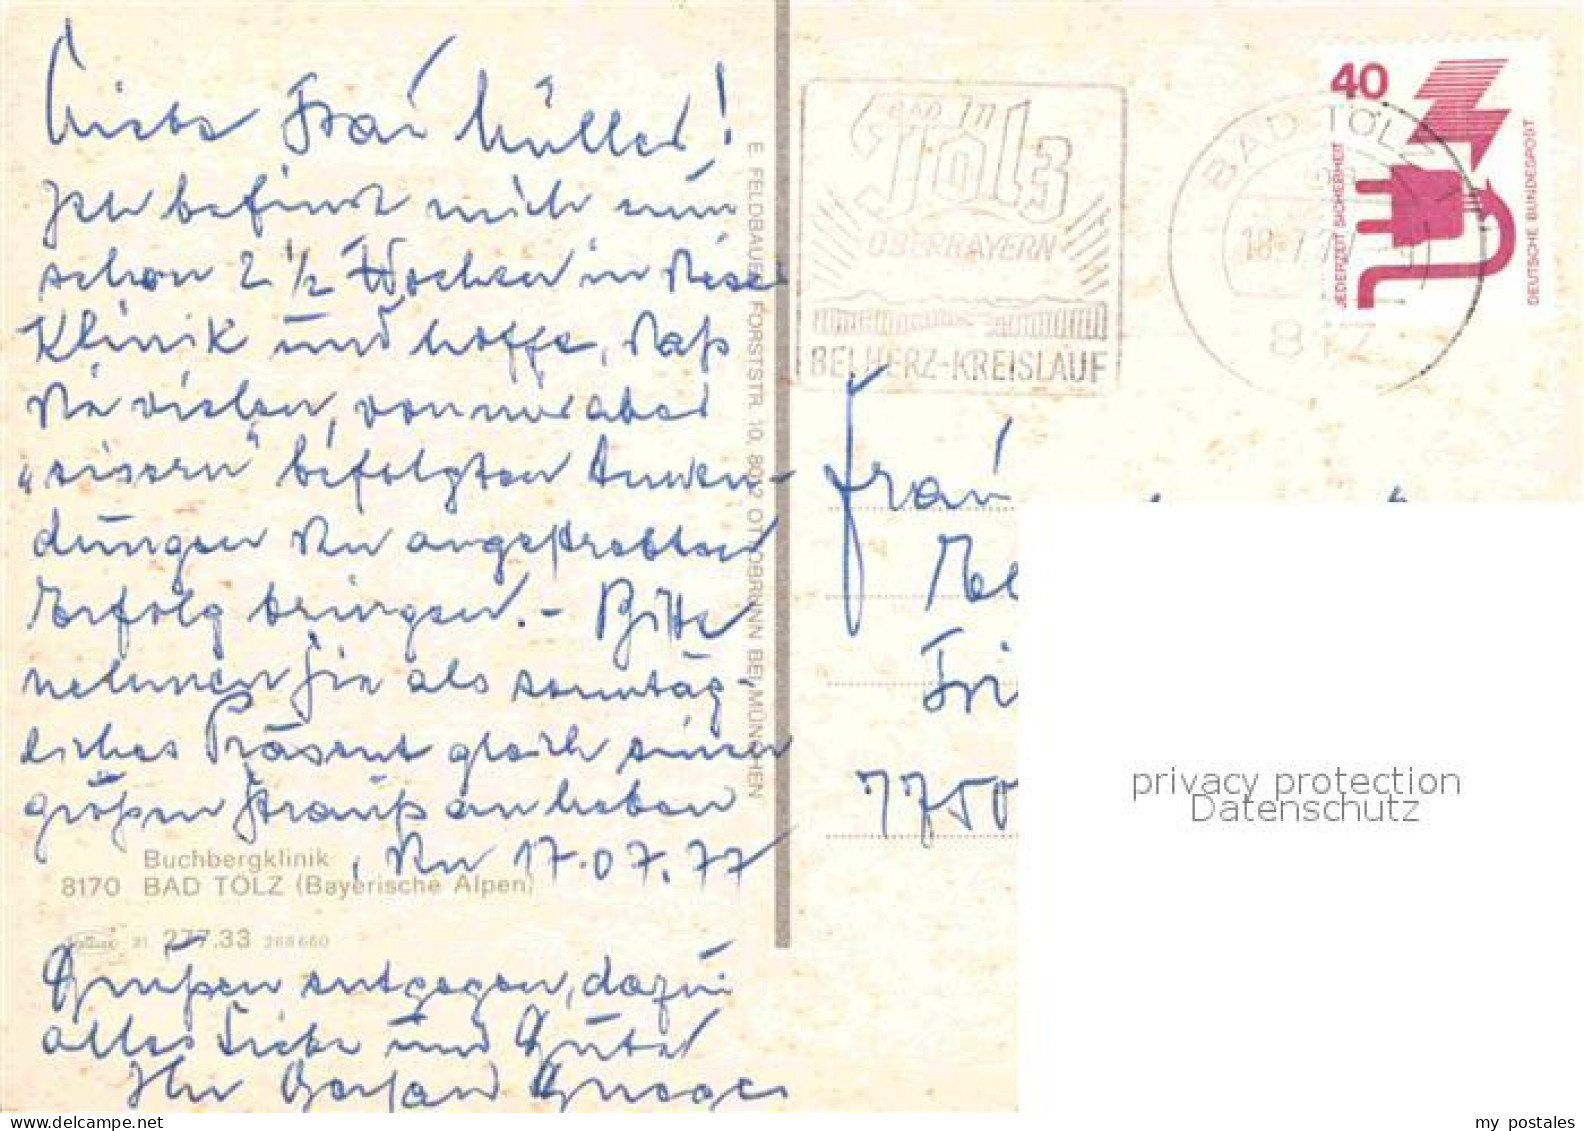 Liebe Frau Müller!
Ich befinde mich nun
schon 2 1/2 Wochen in dieser
Klinik und hoffe, daß
die vielen, von mir aber
"eisern" befolgten Anwen-
dungen den angestrebten
Erfolg bringen. - Bitte
nehmen Sie als sonntäg-
liches Präsent gleich einen
großen Strauß an lieben
, den 17.07.77
Buchbergklinik
8170 BAD TÖLZ (Bayerische Alpen)
91 277.33 288660
Grüßen entgegen, dazu
alles Liebe und Gute!
Ihr
E. FELDBAUER FORSTSTR. 10, 8012 OTTOBRUNN BEI MÜNCHEN
in
BAD
Tölz
OBERBAYERN
BEI HERZ-KREISLAUF
BAD TÖLZ 1
18.7.77
817
40
JEDERZEIT SICHERHEIT
DEUTSCHE BUNDESPOST
Frau
Fri
7750
privacy protection
Datenschutz
my postales